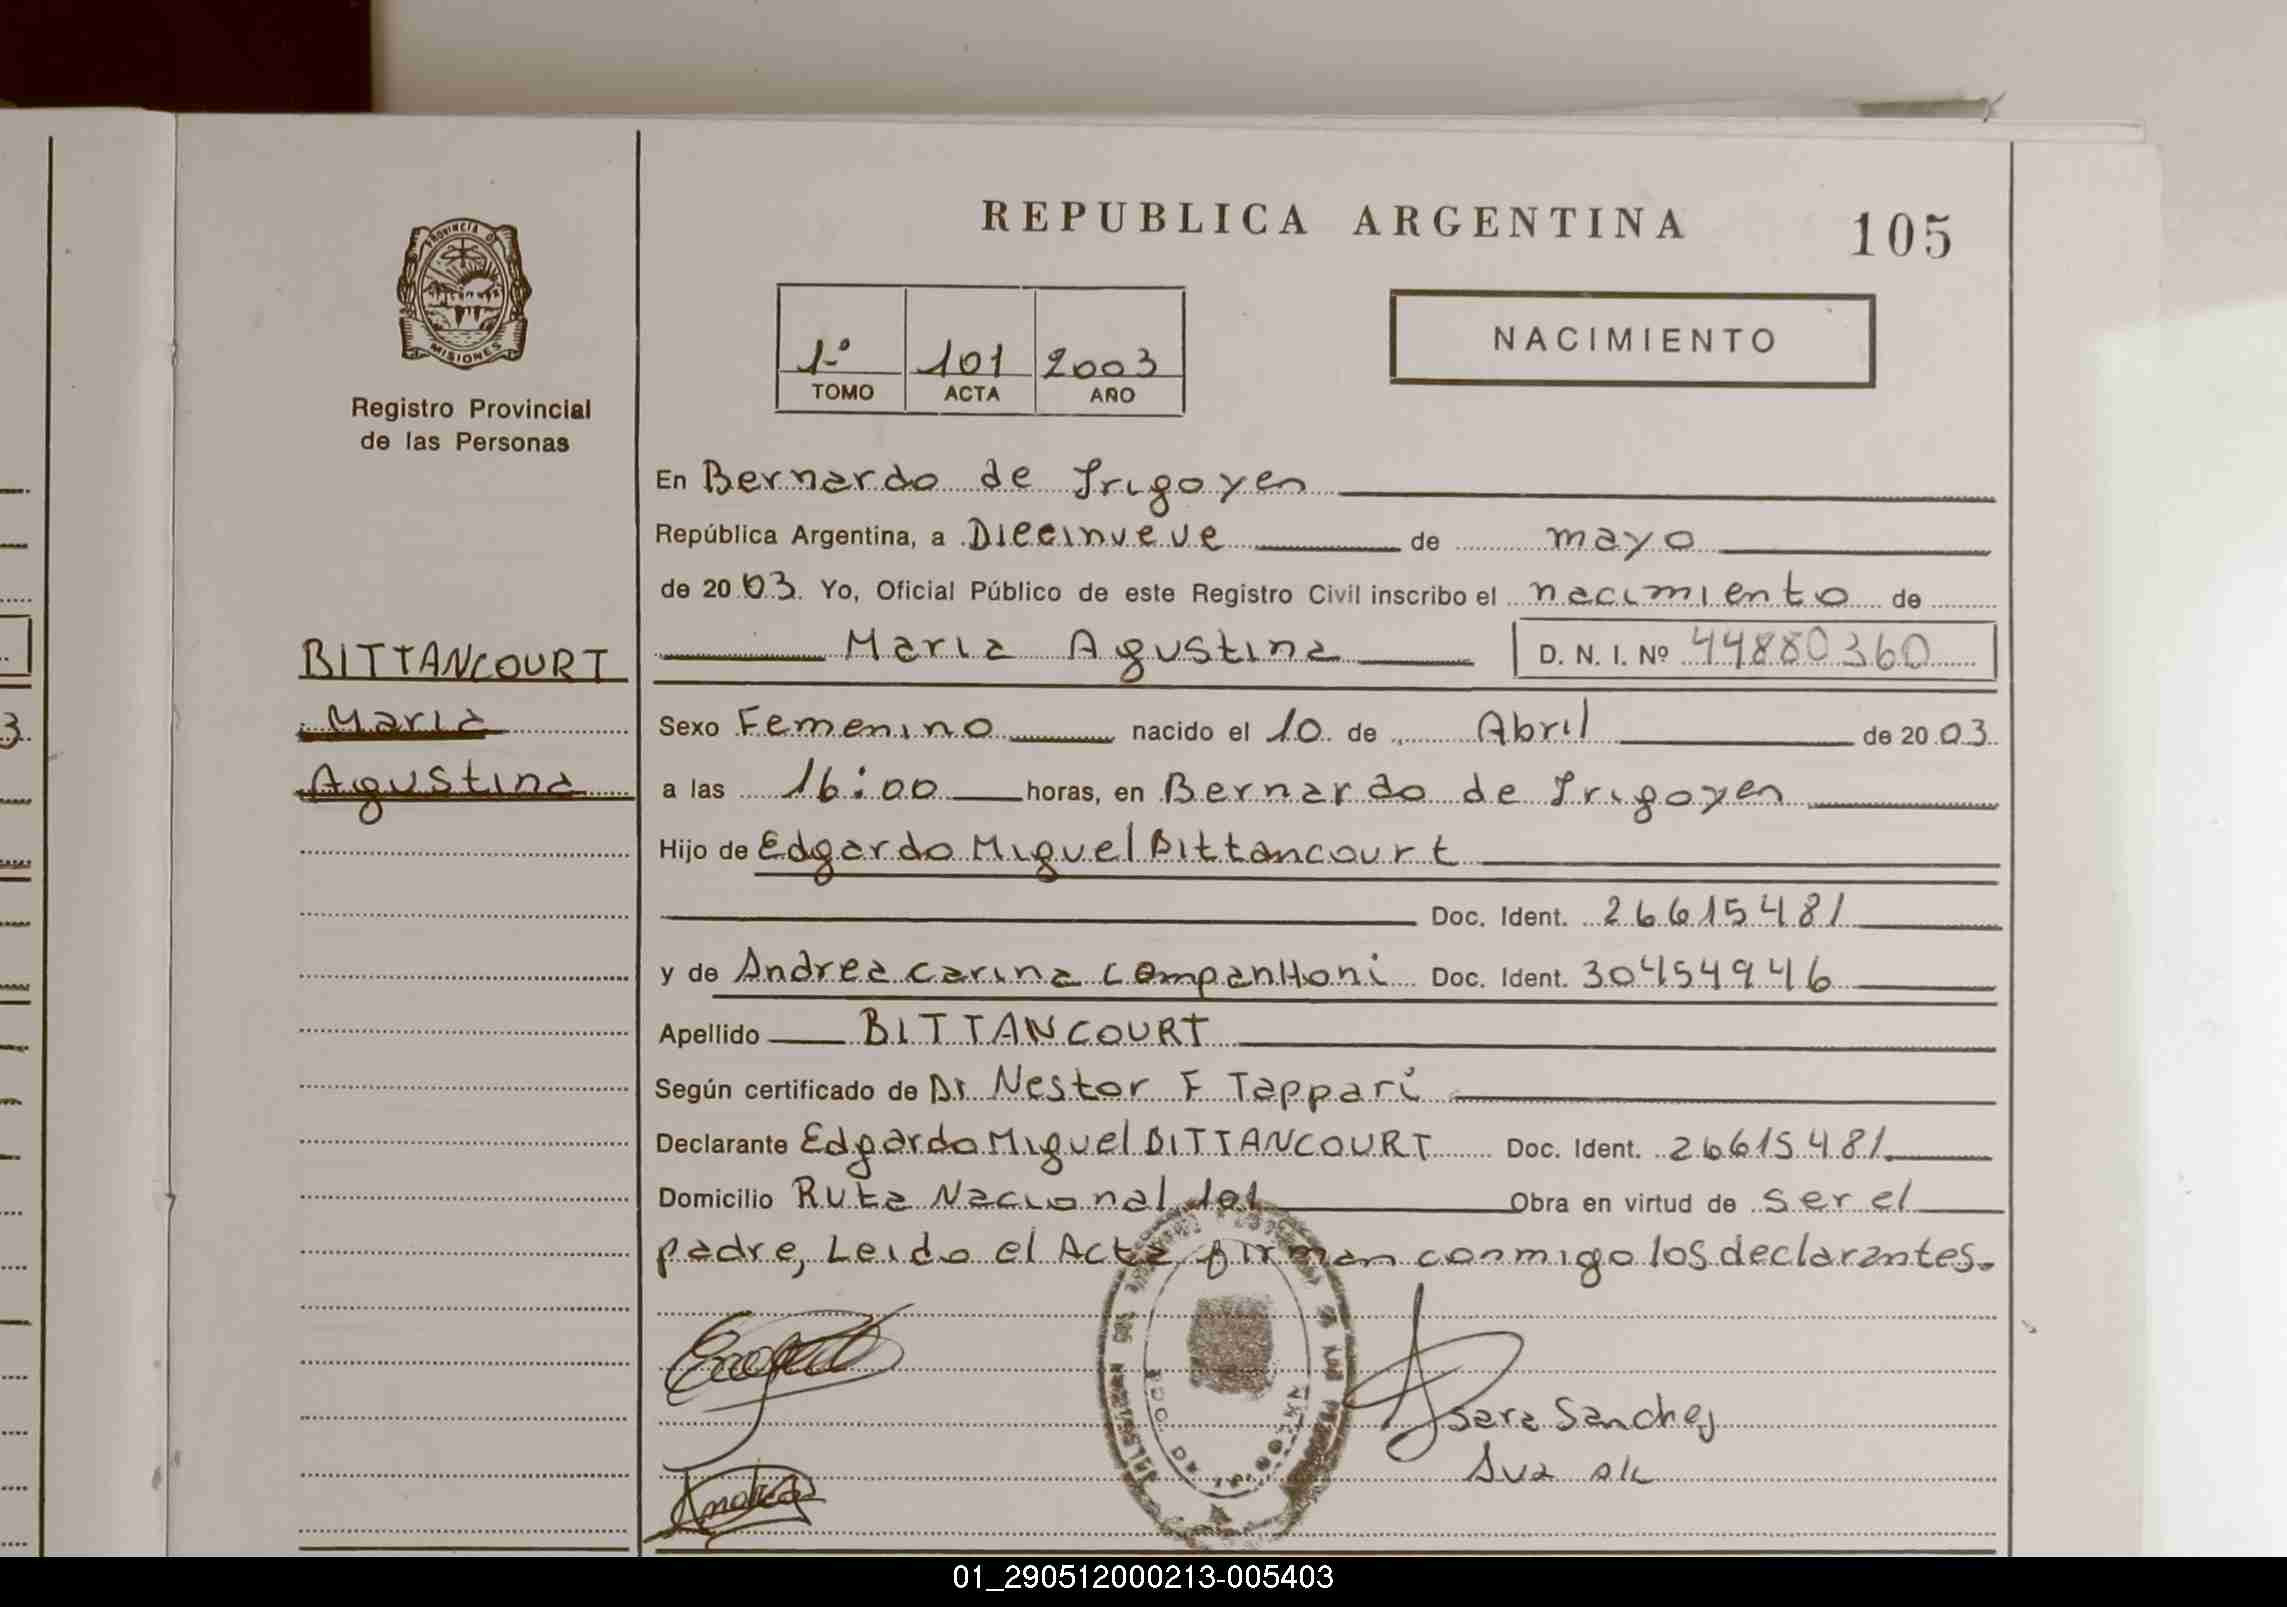 REPUBLICA ARGENTINA
105
PROVINCIA DE
MISIONES
Registro Provincial
de las Personas
1º 101 2003
TOMO ACTA AÑO
NACIMIENTO
En Bernardo de Irigoyen
República Argentina, a Diecinueve de mayo
de 2003. Yo, Oficial Público de este Registro Civil inscribo el nacimiento de
Maria Agustina D. N. I. Nº 44880360
BITTANCOURT
Maria
Agustina
Sexo Femenino nacido el 10 de Abril de 2003.
a las 16:00 horas, en Bernardo de Irigoyen
Hijo de Edgardo Miguel Bittancourt
Doc. Ident. 26615481
y de Andrea carina CompanHoni Doc. Ident. 30454946
Apellido BITTANCOURT
Según certificado de Dr Nestor F Tappari
Declarante Edgardo Miguel BITTANCOURT Doc. Ident. 26615481.
Domicilio Ruta Nacional 101 Obra en virtud de ser el
padre, Leido el Acta firman conmigo los declarantes.
Sara Sanchez
3
01_290512000213-005403